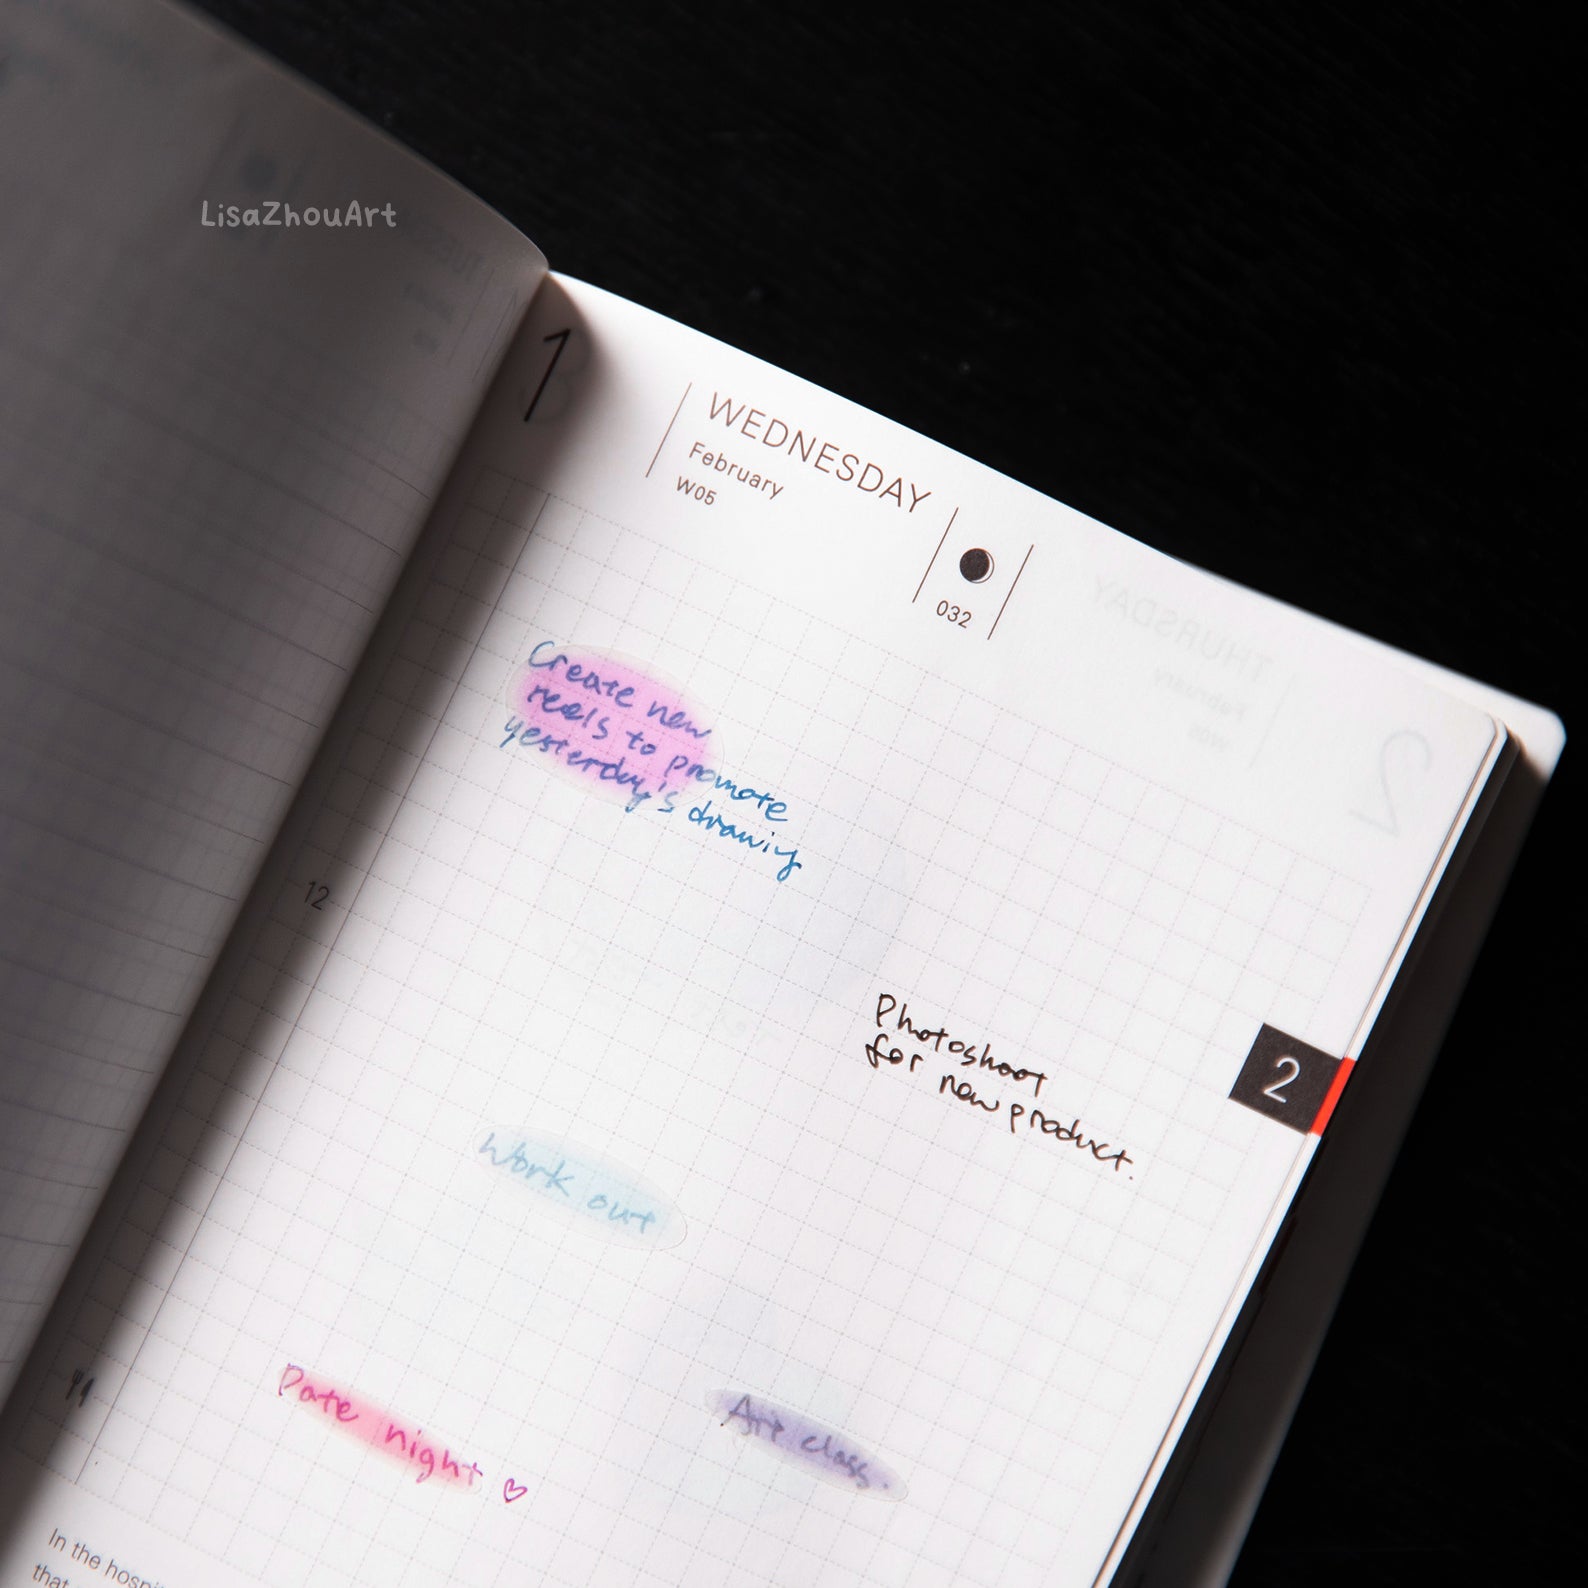 LisaZhouArt
1
WEDNESDAY
February
W05
032
Create new
reels to promote
yesterday's drawing
12
Photoshoot
for new product.
2
Work out
Date night ♡
Art class.
In the hospi
that
THURSDAY
February
W05
2